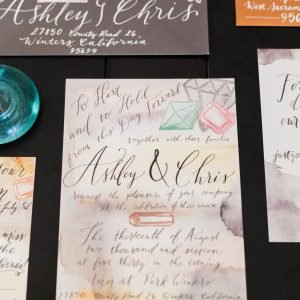 Ashley & Chris
27850 County Road 26.
Winters California
95694
West Sacramento
956
To Have
and to Hold
from this Day Forward
together with their families
Ashley & Chris
request the pleasure of your company
at the celebration of their union
The thirteenth of August
two thousand and sixteen
at five thirty in the evening
Inn at Park Winters
27850 County Road 26 Winters California
For
our
your
July
miss
the